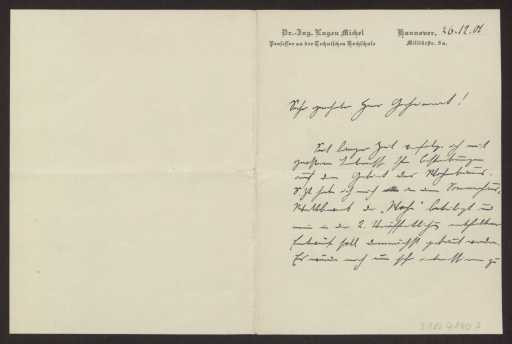 Dr.-Ing. Eugen Michel
Professor an der Technischen Hochschule
Hannover, 26.12.07
Militärstr. 9a.
Sehr geehrter Herr Geheimrat!
Seit langer Zeit verfolge ich mit
großem Interesse Ihre Bestrebungen
auf dem Gebiet des Wohnbaus.
ich mich an dem Sommerhaus-
Wettbewerb der „Woche“ beteiligt und
mein in der 2. enthaltener
Entwurf soll demnächst gebaut werden.
Es würde mich nun sehr zu